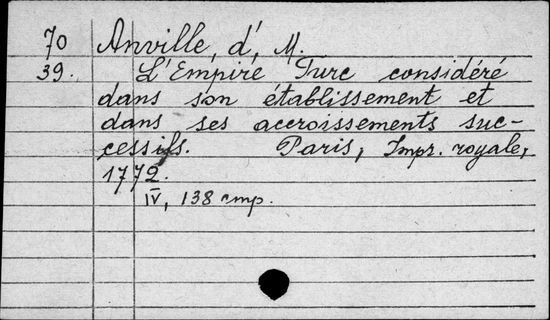 70 Anville, d', M.
39. L'Empire Turc considéré
dans son établissement et
dans ses accroissements suc-
cessifs. Paris, Impr. royale,
1772.
IV, 138 стр.